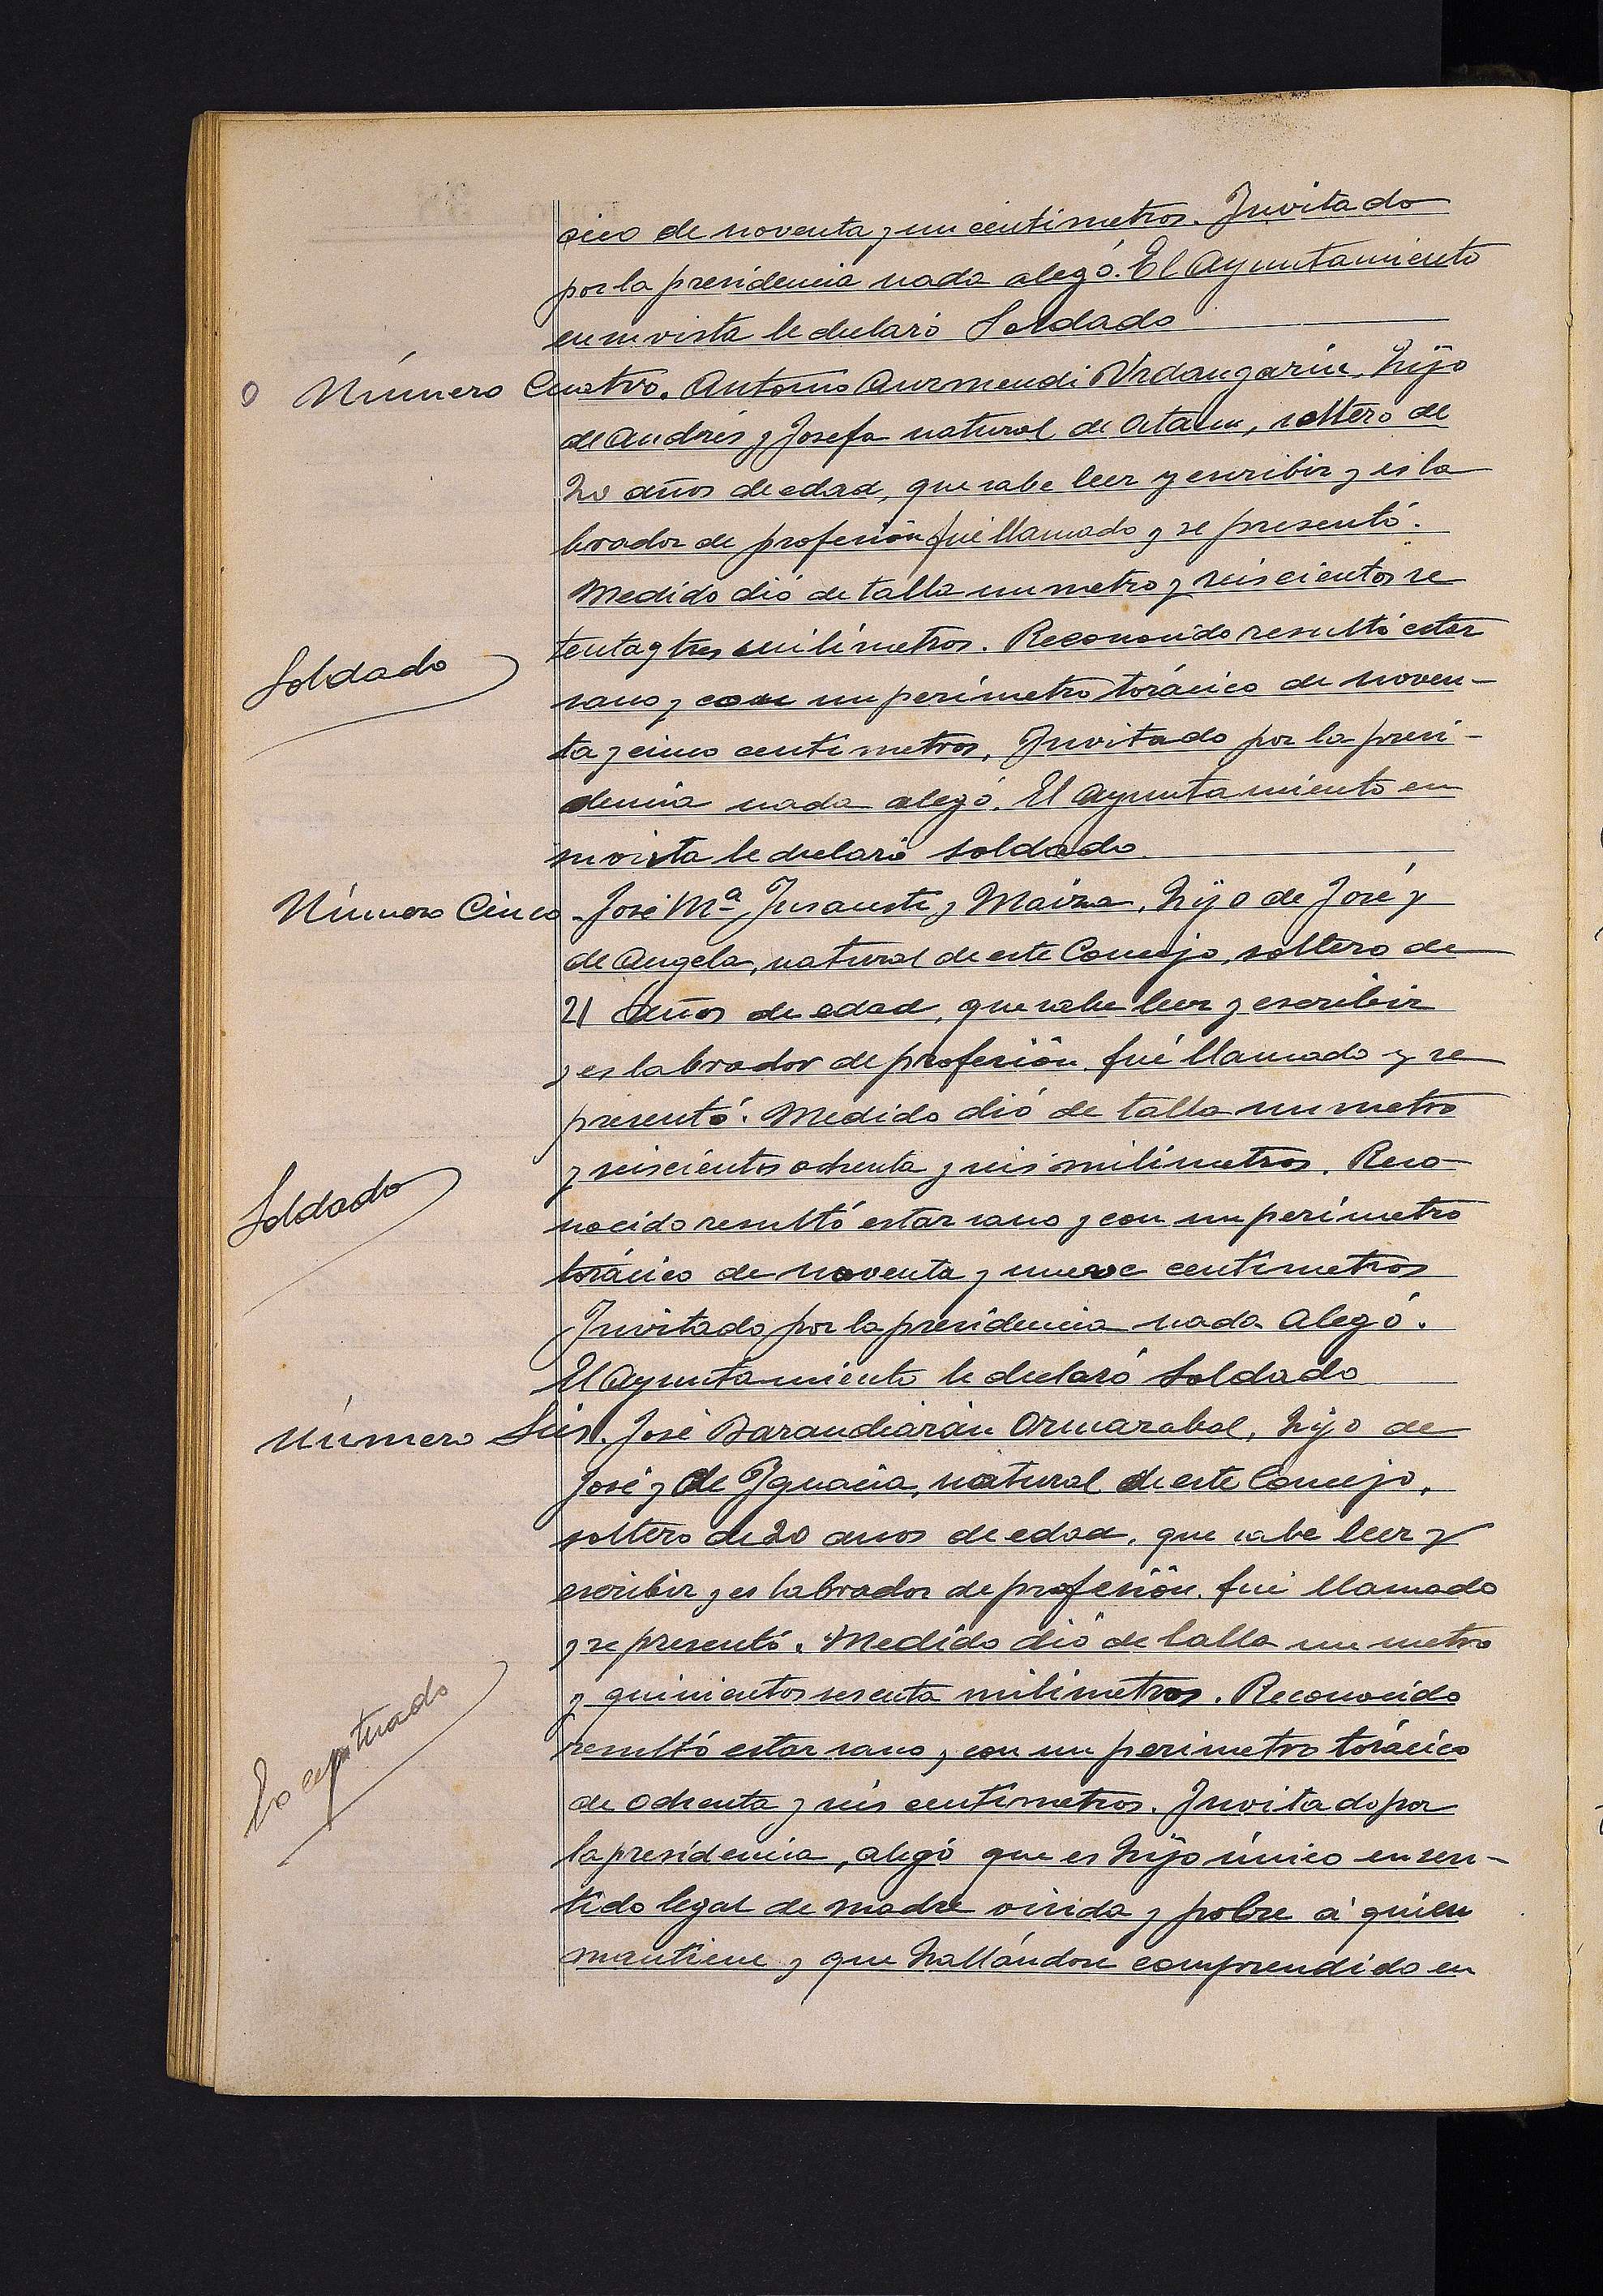 cico de noventa y un centimetros. Invitado
por la presidencia nada alegó. El Ayuntamiento
en su vista le declaró Soldado
Número Cuatro. Antonio Aurmendi Urdangarin, hijo
de Andrés y Josefa natural de Ataun, soltero de
20 años de edad, que sabe leer y escribir y es la
brador de profesión fué llamado y se presentó.
Medido dió de talla un metro y seiscientos se
tenta y tres milímetros. Reconocido resultó estar
Soldado
sano y con un perímetro torácico de noven-
ta y cinco centímetros, Invitado por la presi-
dencia nada alegó. El Ayuntamiento en
su vista le declaró soldado.
Número Cinco - José Mª Insausti y Maiza, hijo de José y
de Angela, natural de este Concejo, soltero de
21 años de edad, que sabe leer y escribir
y es labrador de profesión fué llamado y se
presentó. Medido dió de talla un metro
y seiscientos ochenta y seis milímetros. Reco-
Soldado
nocido resultó estar sano y con un perímetro
torácico de noventa y nueve centímetros
Invitado por la presidencia nada alegó.
El Ayuntamiento le declaró Soldado
Número Seis. José Barandiarán Ormazabal, hijo de
José y de Ignacia, natural de este Concejo,
soltero de 20 anos de edad, que sabe leer y
escribir y es labrador de profesión. fué llamado
y se presentó. Medido dió de talla un metro
y quinientos sesenta milimetros. Reconocido
resultó estar sano y con un perimetro torácico
Exceptuado
de ochenta y seis centímetros. Invitado por
la presidencia, alegó que es hijo único en sen-
tido legal de madre viuda y pobre á quien
mantiene y que hallándose comprendido en